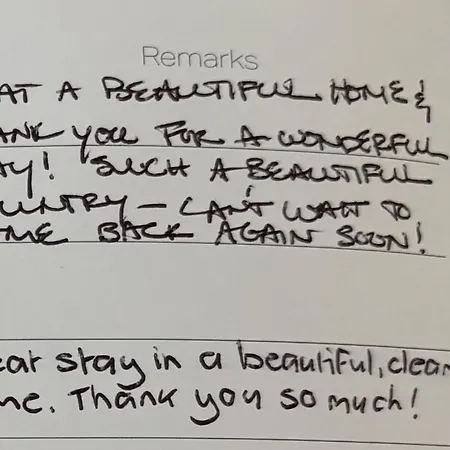 Remarks
AT A BEAUTIFUL HOME &
ANK YOU FOR A WONDERFUL
AY! SUCH A BEAUTIFUL
UNTRY – CAN'T WAIT TO
ME BACK AGAIN SOON!
eat stay in a beautiful, clean
me. Thank you so much!